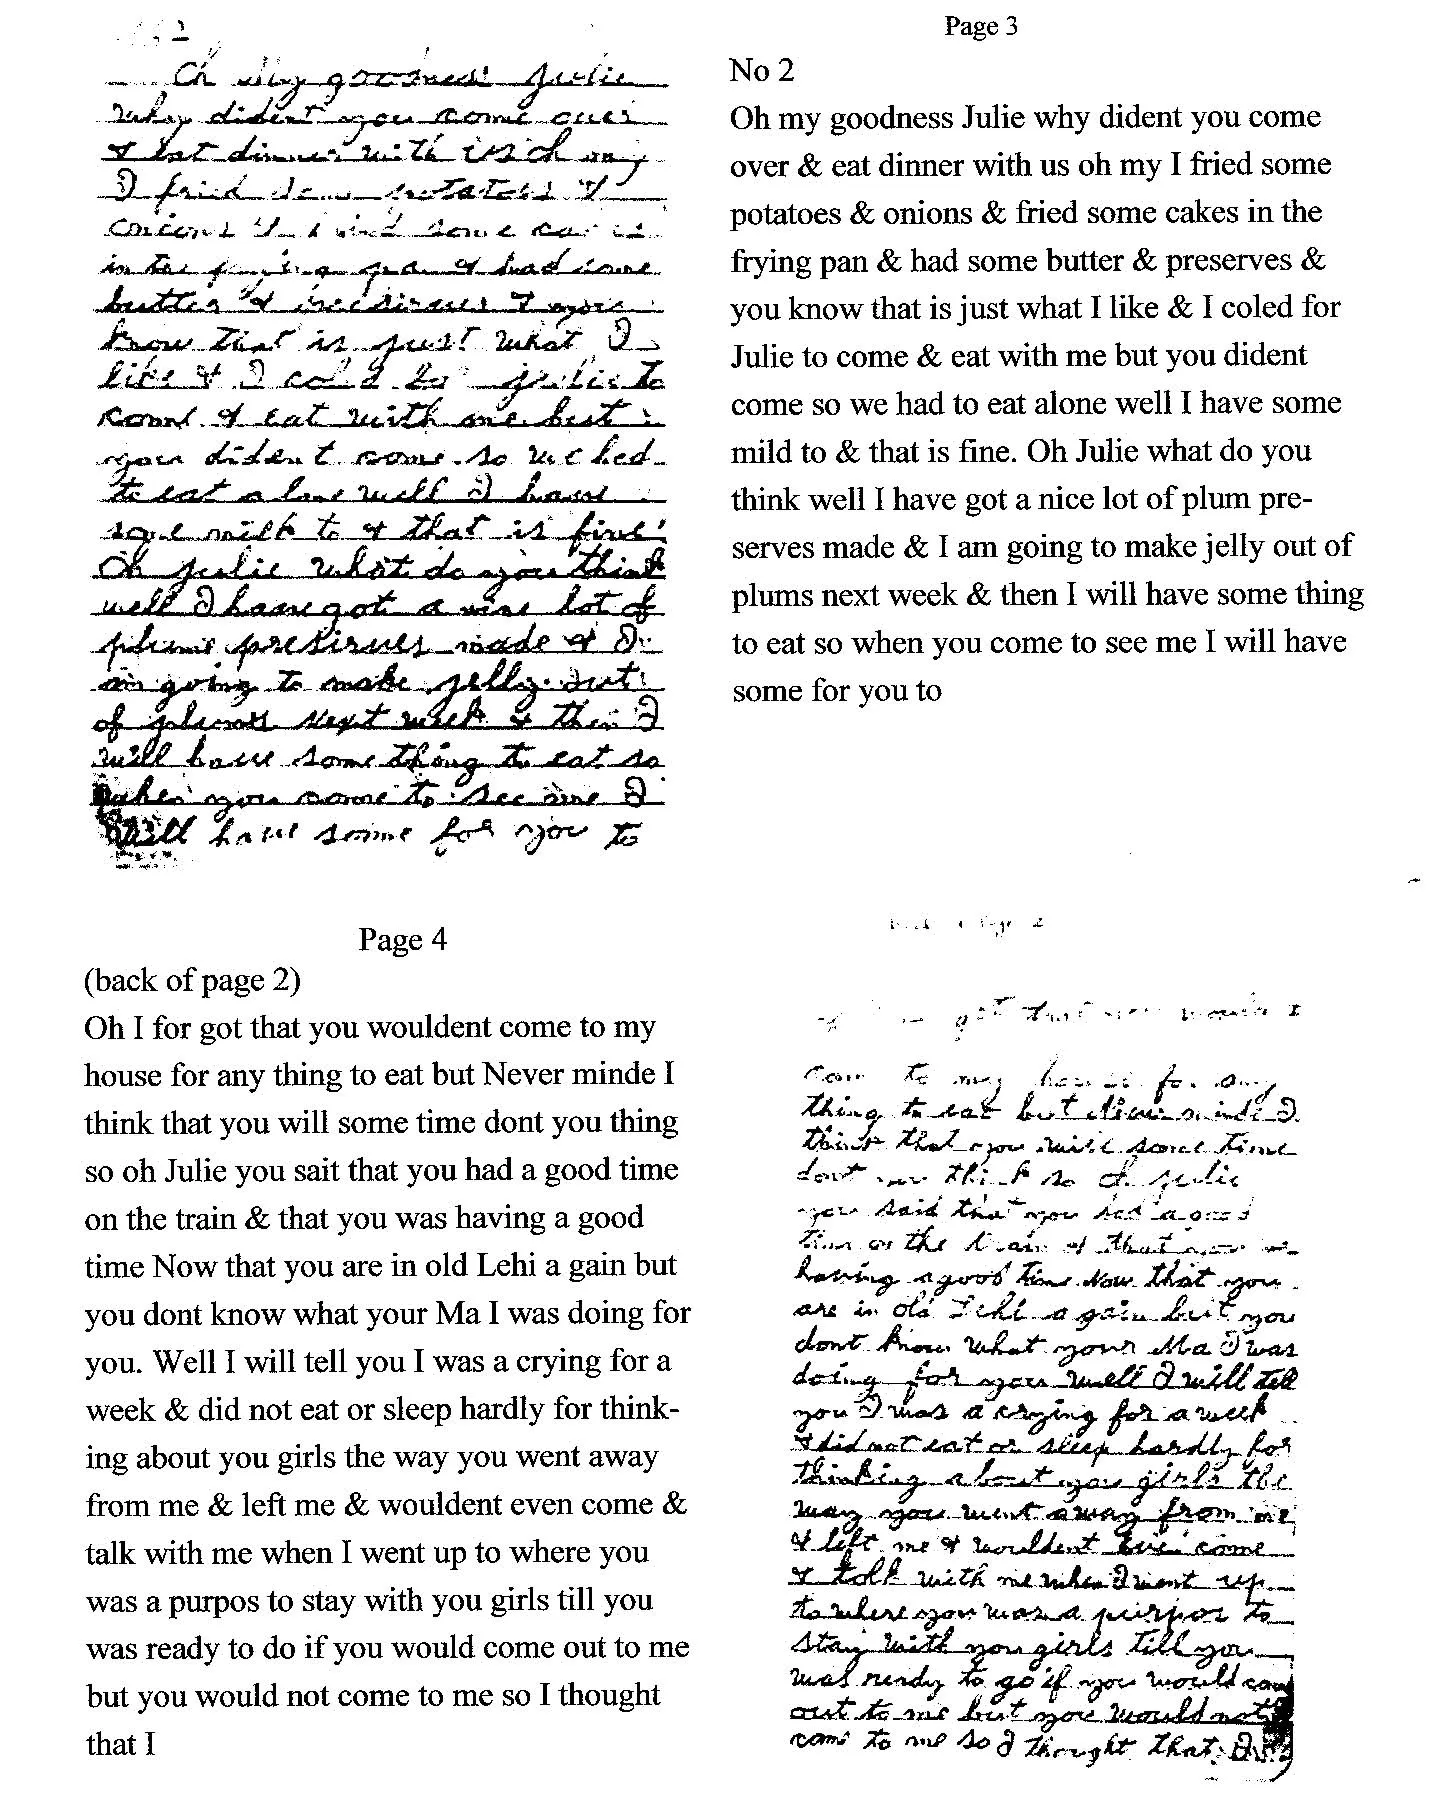 No 2
Oh my goodness Julie
why dident you come over
& eat dinner with us oh my
I fried some potatoes &
onions & fried some cakes
in the frying pan & had some
butter & preserves & you
know that is just what I
like & I cold for Julie to
come & eat with me but
you dident come so we had
to eat alone well I have
some milk to & that is fine
Oh Julie what do you think
well I have got a nice lot of
plums presirves made & I
am going to make jelly out
of plums next week & then I
will have some thing to eat so
when you come to see me I
will have some for you to
Page 3
No 2
Oh my goodness Julie why dident you come
over & eat dinner with us oh my I fried some
potatoes & onions & fried some cakes in the
frying pan & had some butter & preserves &
you know that is just what I like & I coled for
Julie to come & eat with me but you dident
come so we had to eat alone well I have some
mild to & that is fine. Oh Julie what do you
think well I have got a nice lot of plum pre-
serves made & I am going to make jelly out of
plums next week & then I will have some thing
to eat so when you come to see me I will have
some for you to
Page 4
(back of page 2)
Oh I for got that you wouldent come to my
house for any thing to eat but Never minde I
think that you will some time dont you thing
so oh Julie you sait that you had a good time
on the train & that you was having a good
time Now that you are in old Lehi a gain but
you dont know what your Ma I was doing for
you. Well I will tell you I was a crying for a
week & did not eat or sleep hardly for think-
ing about you girls the way you went away
from me & left me & wouldent even come &
talk with me when I went up to where you
was a purpos to stay with you girls till you
was ready to do if you would come out to me
but you would not come to me so I thought
that I
back of page 2
got that you
come to my house for any
thing to eat but Never minde I
think that you will some time
dont you think so oh Julie
you said that you had a good
time on the train & that you
having a good time Now that you
are in old Lehi a gain but you
dont know what your Ma I was
doing for you well I will tell
you I was a crying for a week
& did not eat or sleep hardly for
thinking about you girls the
way you went away from me
& left me & wouldent even come
& talk with me when I went up
to where you was a purpos to
stay with you girls till you
was ready to go if you would come
out to me but you would not
come to me so I thought that I